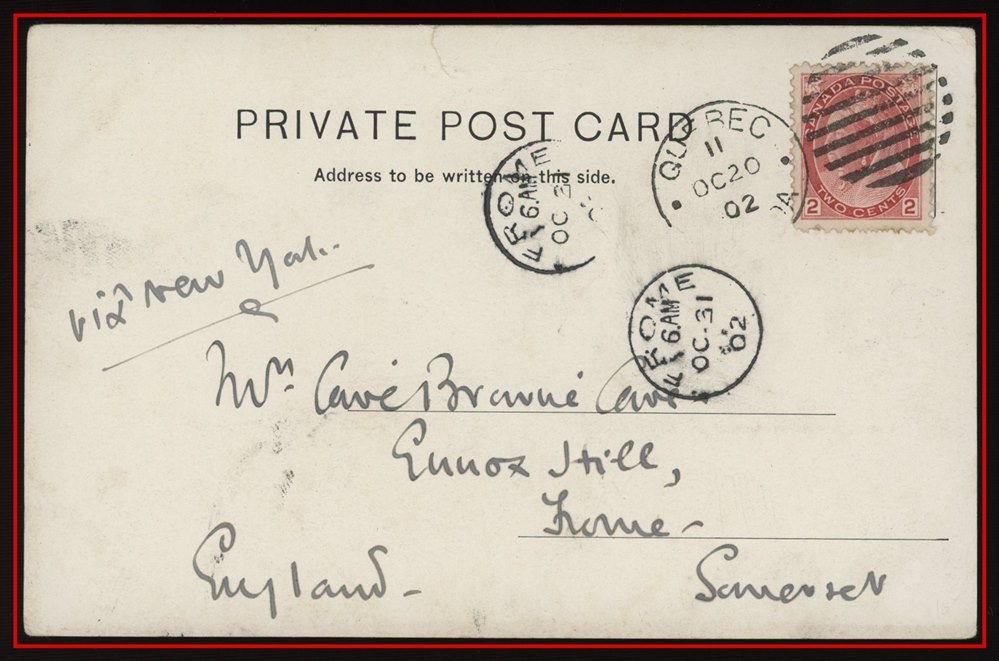 PRIVATE POST CARD
Address to be written on this side.
CANADA POSTAGE
2 TWO CENTS 2
QUEBEC
11
OC 20
02
DA
FROME
6 AM
OC 31
FROME
6 AM
OC 31
02
viâ New York.
Mrs Cave Browne Cave
Ennox Hill,
Frome -
England -
Somerset